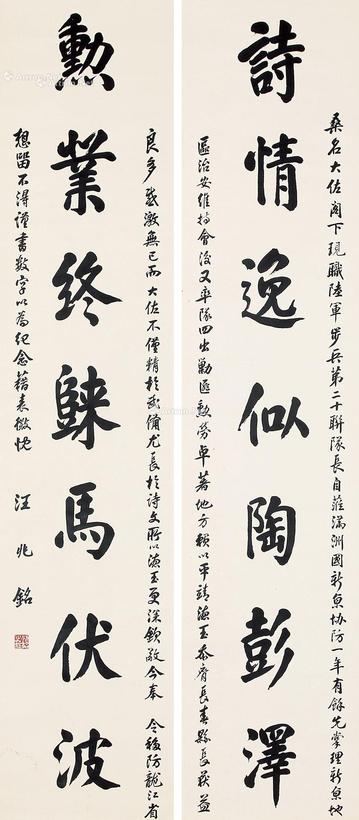 詩情逸似陶彭澤
桑名大佐閣下現職陸軍步兵第二十聯隊長自蒞滿洲國新京協防一年有餘先掌理新京地
區治安維持會後又率隊四出勦匪勳勞卓著地方賴以平靖漁玉忝膺長春縣長獲益
良多感激無已而大佐不僅精於武備尤長於詩文所以漁玉更深欽敬今奉 令移防龍江省
想留不得謹書數字以為紀念藉表微忱
汪兆銘
勳業終歸馬伏波